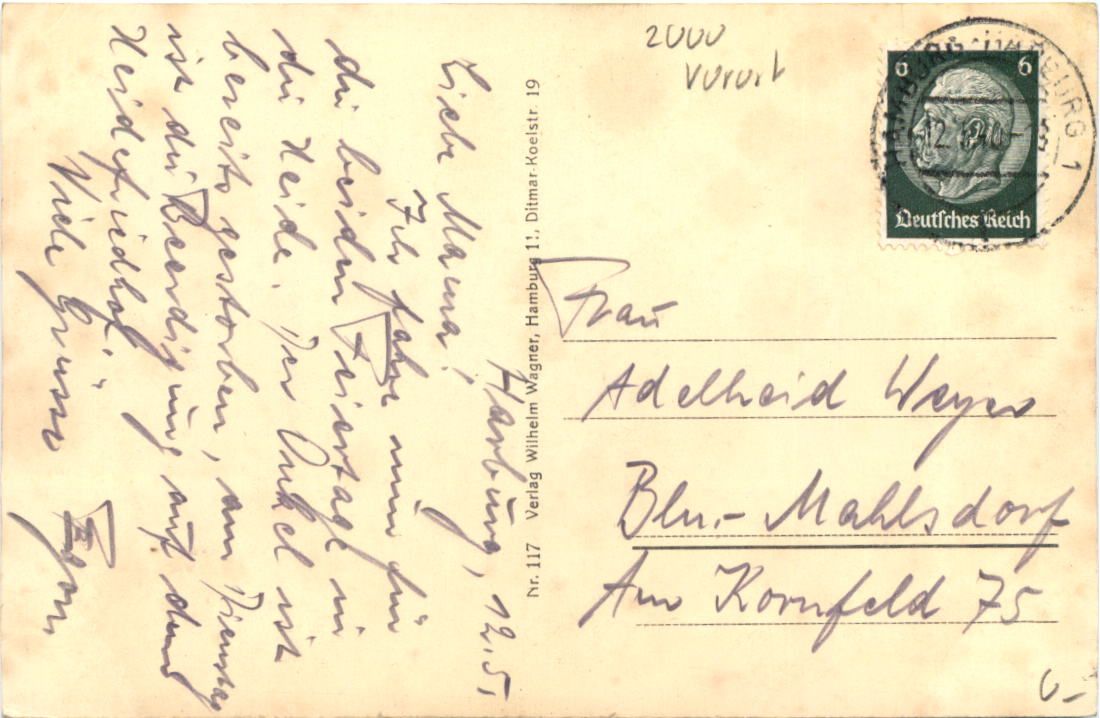 Harburg, 12.5.
Liebe Mama!
Ich fahre nun für
die beiden Feiertage in
die Heide. Der Onkel ist
bereits gestorben, am Dienstag
ist die Beerdigung auf dem
Heidefriedhof.
Viele Grüsse
Egon.
Nr. 117 Verlag Wilhelm Wagner, Hamburg 11, Ditmar-Koelstr. 19
2000
Vorort
6 6
Deutsches Reich
HAMBURG-HARBURG 1
12.5.40
Frau
Adelheid Weyer
Bln.-Mahlsdorf
Am Kornfeld 75
6-